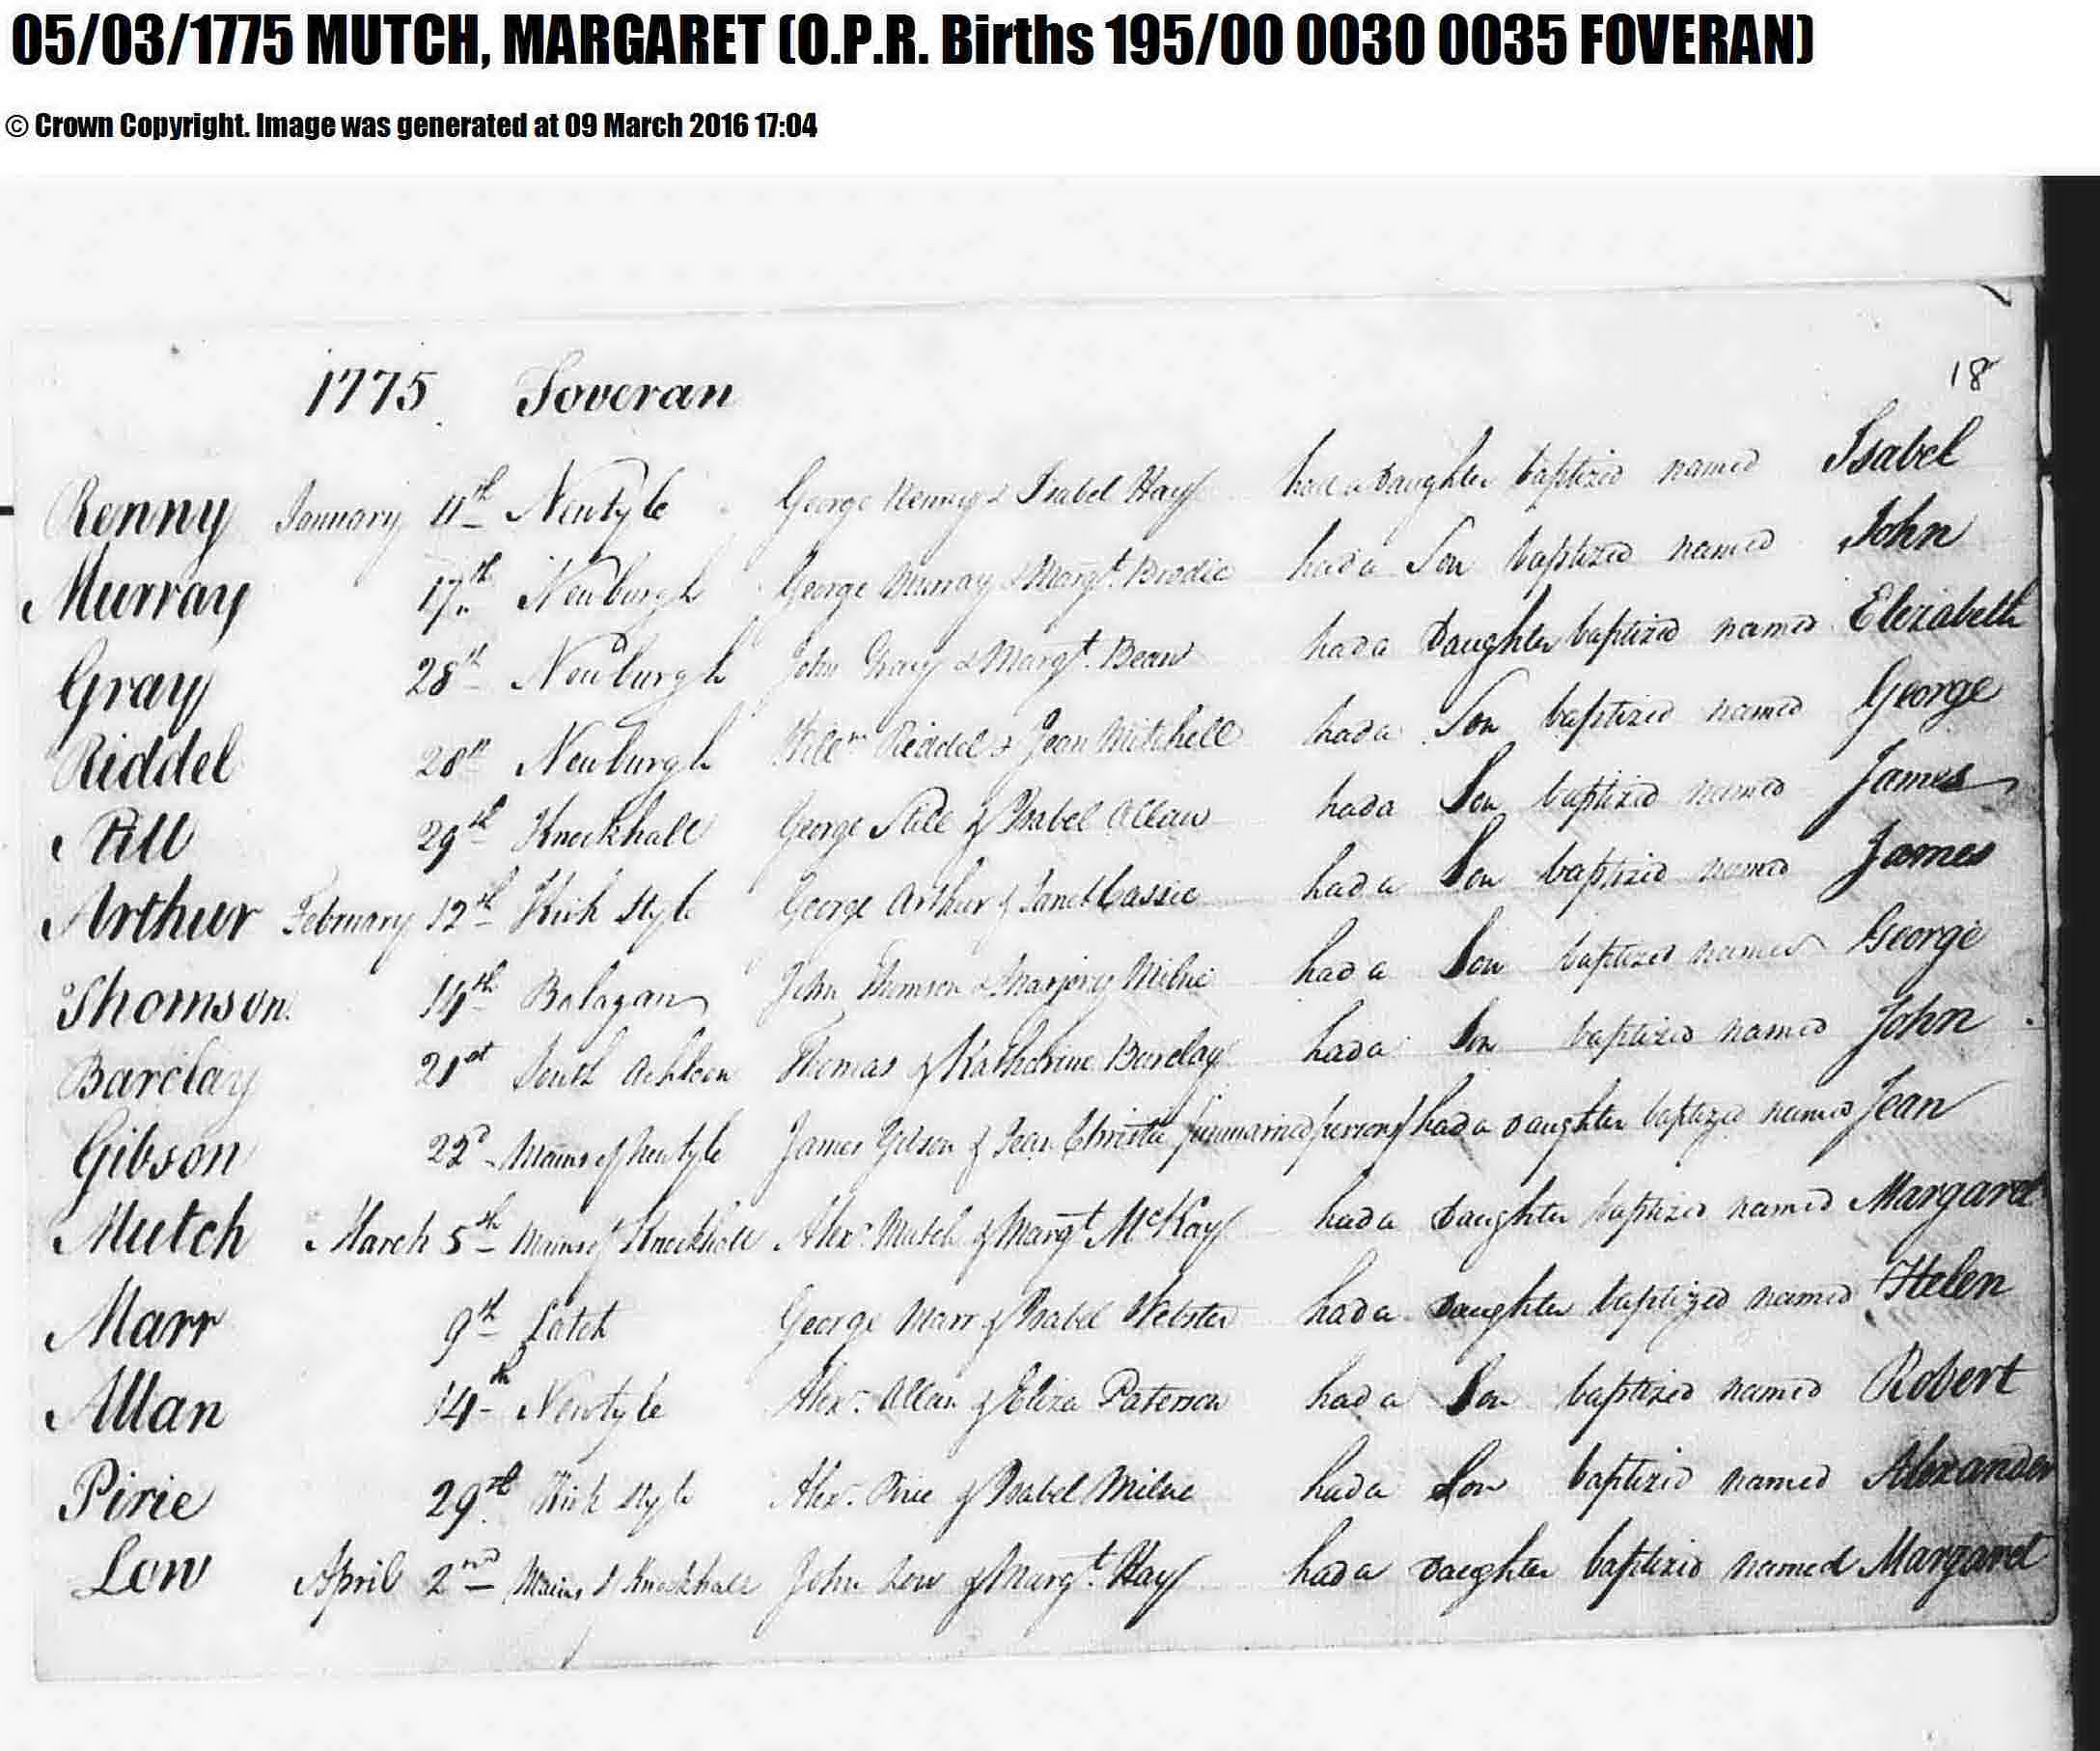 05/03/1775 MUTCH, MARGARET (O.P.R. Births 195/00 0030 0035 FOVERAN)
© Crown Copyright. Image was generated at 09 March 2016 17:04
18
1775 Foveran
Renny January 11th Newtyle George Renny & Isabel Hay had a Daughter baptized named Isabel
Murray 17th Newburgh George Murray & Margt. Brodie had a Son baptized named John
Gray 28th Newburgh John Gray & Margt. Bean had a Daughter baptized named Elizabeth
Riddel 28th Newburgh Willm Riddel & Jean Mitchell had a Son baptized named George
Still 29th Knockhall George Still & Isabel Allan had a Son baptized named James
Arthur February 12th Kirk Style George Arthur & Janet Cassie had a Son baptized named James
Thomson 14th John Thomson & Marjory Milne had a Son baptized named George
Barclay 21st South Thomas & Katherine Barclay had a Son baptized named John
Gibson 22d Mains of Newtyle James Gibson & Jean Christie unmarried persons had a Daughter baptized named Jean
Mutch March 5th Mains of Knockhall Alexr Mutch & Margt McKay had a Daughter baptized named Margaret
Marr 9th George Marr & Isabel Webster had a Daughter baptized named Helen
Allan 14th Newtyle Alexr. Allan & Eliza Paterson had a Son baptized named Robert
Pirie 29th Kirk Style Alexr. Pirie & Isabel Milne had a Son baptized named Alexander
Low April 2nd Mains of Knockhall John Low & Margt. Hay had a Daughter baptized named Margaret